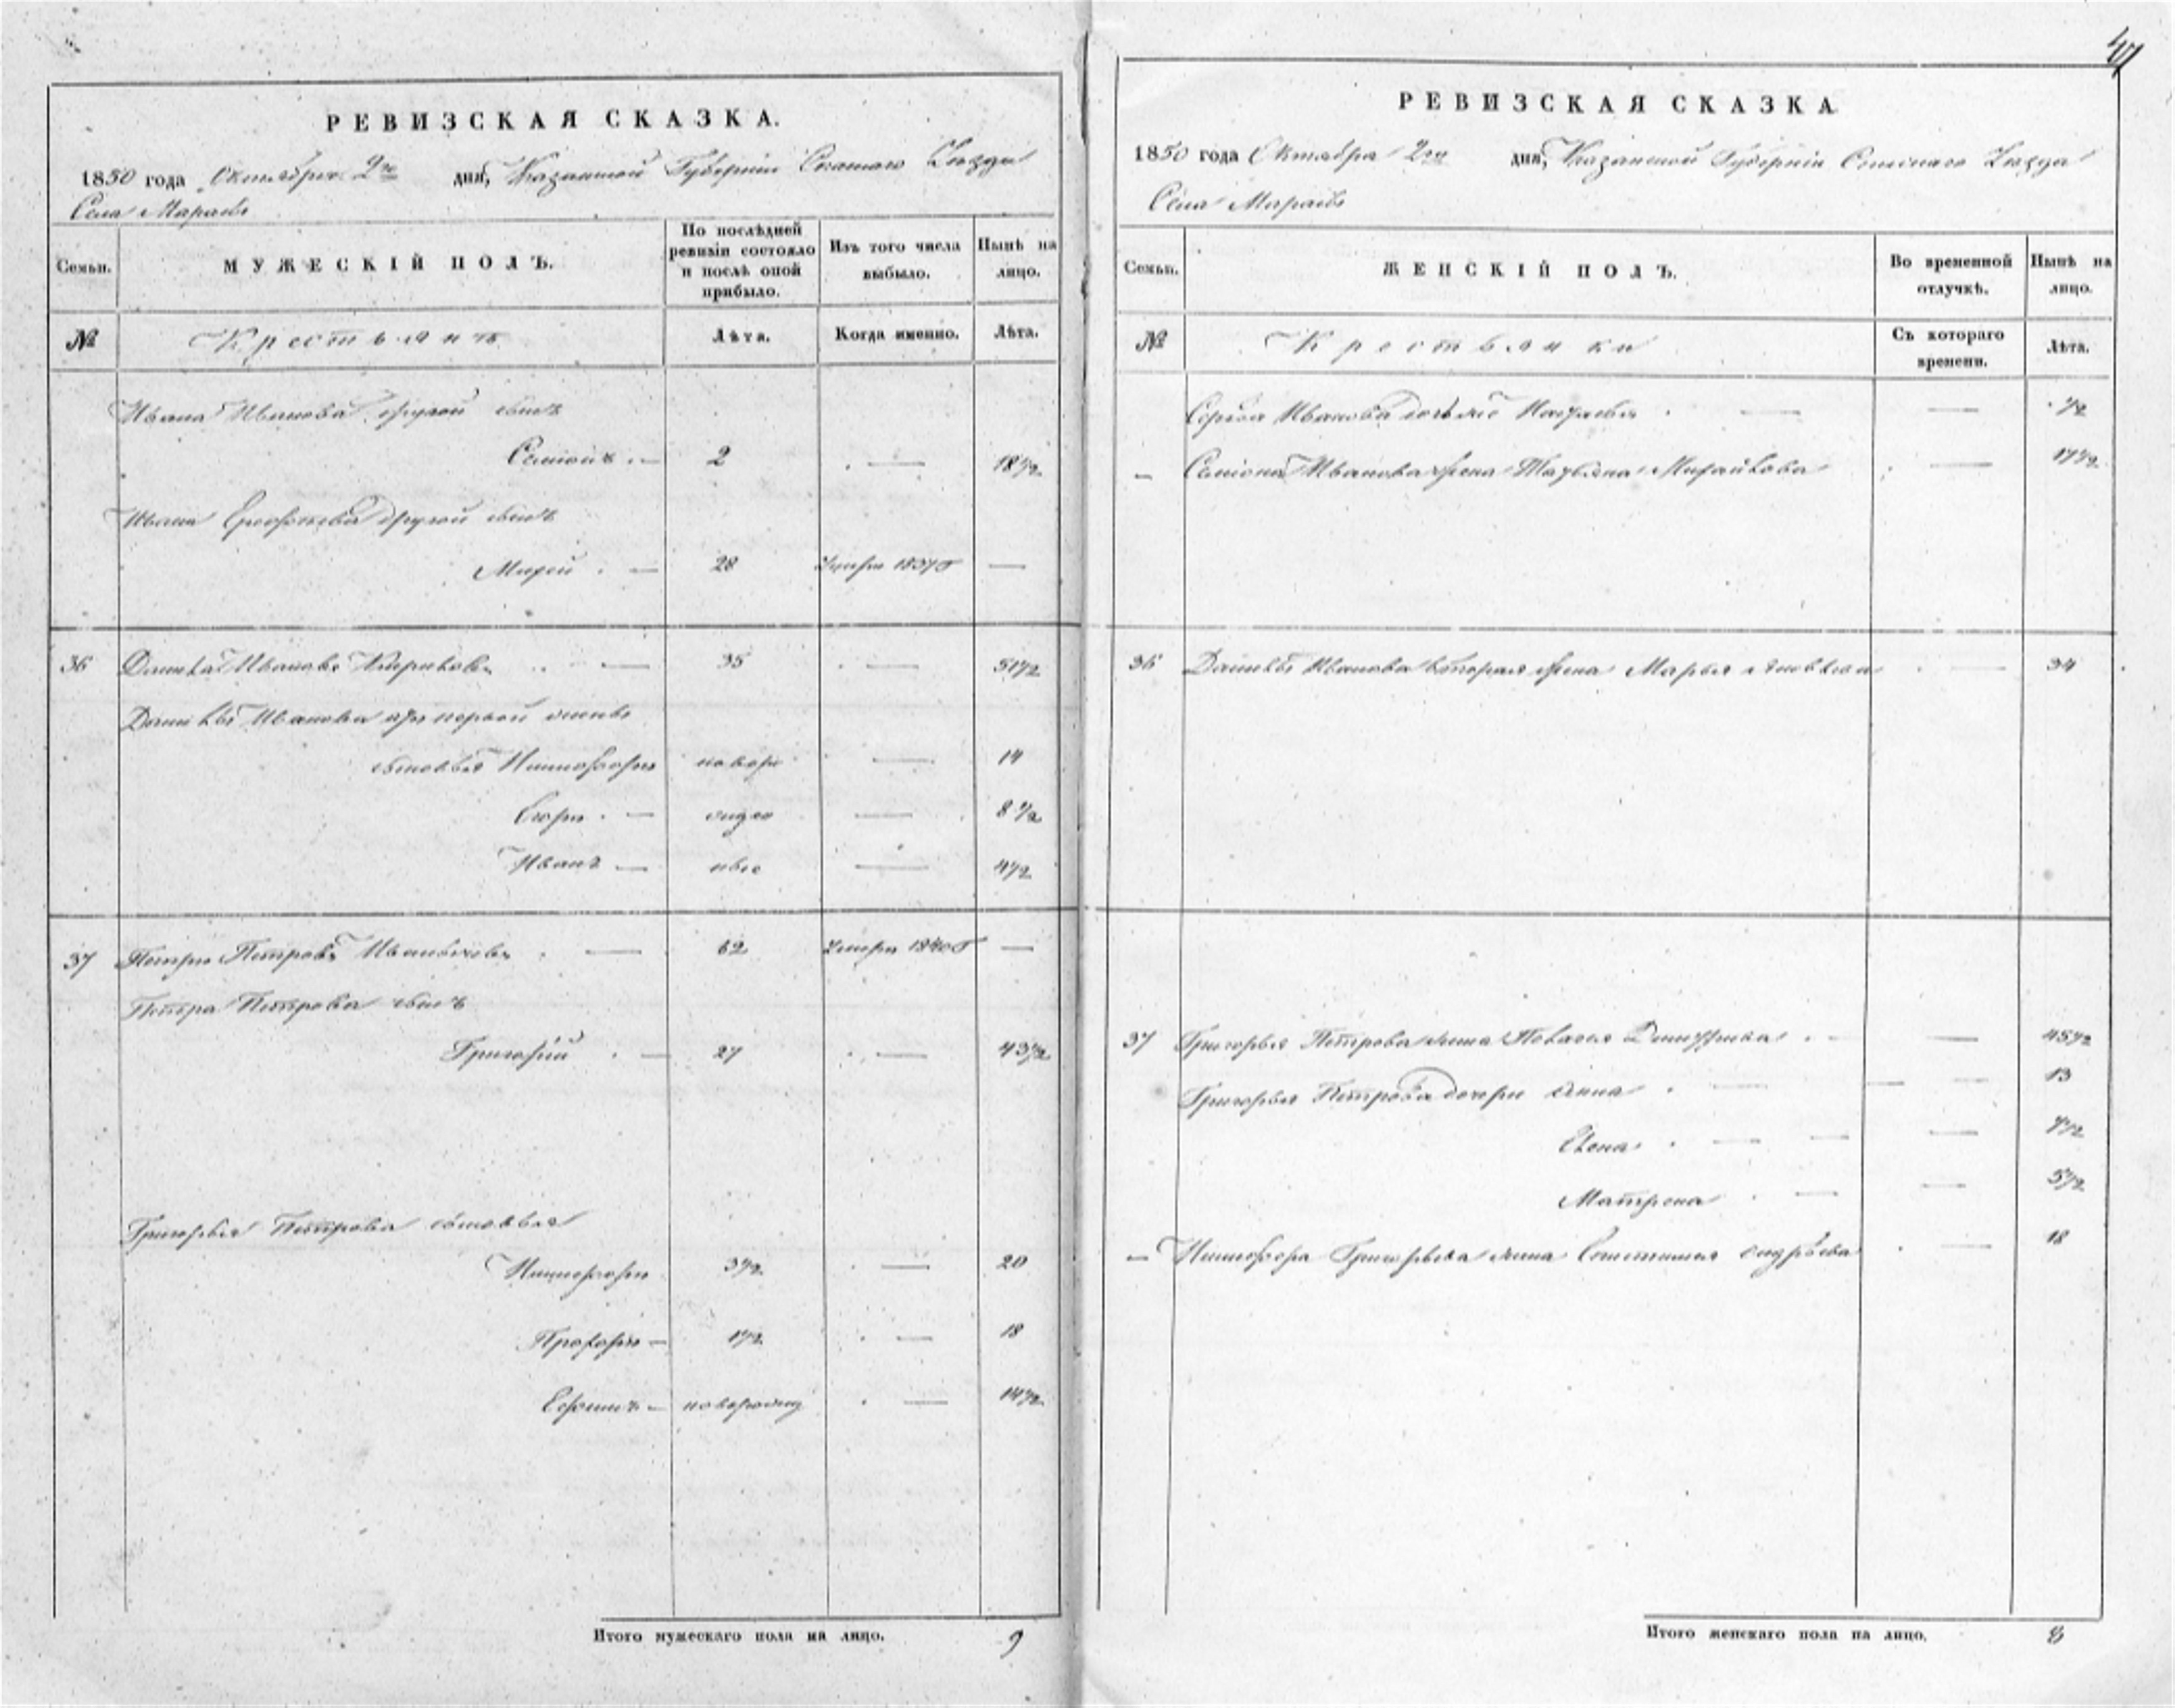 РЕВИЗСКАЯ СКАЗКА.
1850 года Октября 2го дня, Казанской Губерніи Уѣзда
Села Мараѣ
Семьи. МУЖЕСКІЙ ПОЛЪ. По послѣдней ревизіи состояло и послѣ оной прибыло. Изъ того числа выбыло. Нынѣ на лицо.
№ Крестьянъ Лѣта. Когда именно. Лѣта.
Ивана Иванова другой сынъ
Семіонъ 2 18½
Ивана другой сынъ
Михей 28 Умеръ 1837г —
36 Данила Ивановъ 35 51½
Данилы Иванова первой жены
сыновья Никифоръ новоро 14
Егоръ ождено 8½
Иванъ ные 4½
37 Петръ Петровъ 62 Умеръ 1840г —
Петра Петрова сынъ
Григорій 27 43½
Григорья Петрова сыновья
Никифоръ 3½ 20
Прохоръ 1½ 18
Ефимъ новорожд 14½
Итого мужескаго пола на лицо. 9
41
РЕВИЗСКАЯ СКАЗКА
1850 года Октября 2го дня, Казанской Губерніи Уѣзда
Села Мараѣ
Семьи. ЖЕНСКІЙ ПОЛЪ. Во временной отлучкѣ. Нынѣ на лицо.
№ Крестьянки Съ котораго времени. Лѣта.
Сергѣя Иванова ½
— Семіона Иванова жена Татьяна Михайлова 17½
36 Данилы Иванова вторая жена Марья 34
37 Григорья Петрова жена 45½
Григорья Петрова дочери Анна 13
Елена 7½
Матрена 5½
— Никифора Григорьева жена 18
Итого женскаго пола на лицо. 8